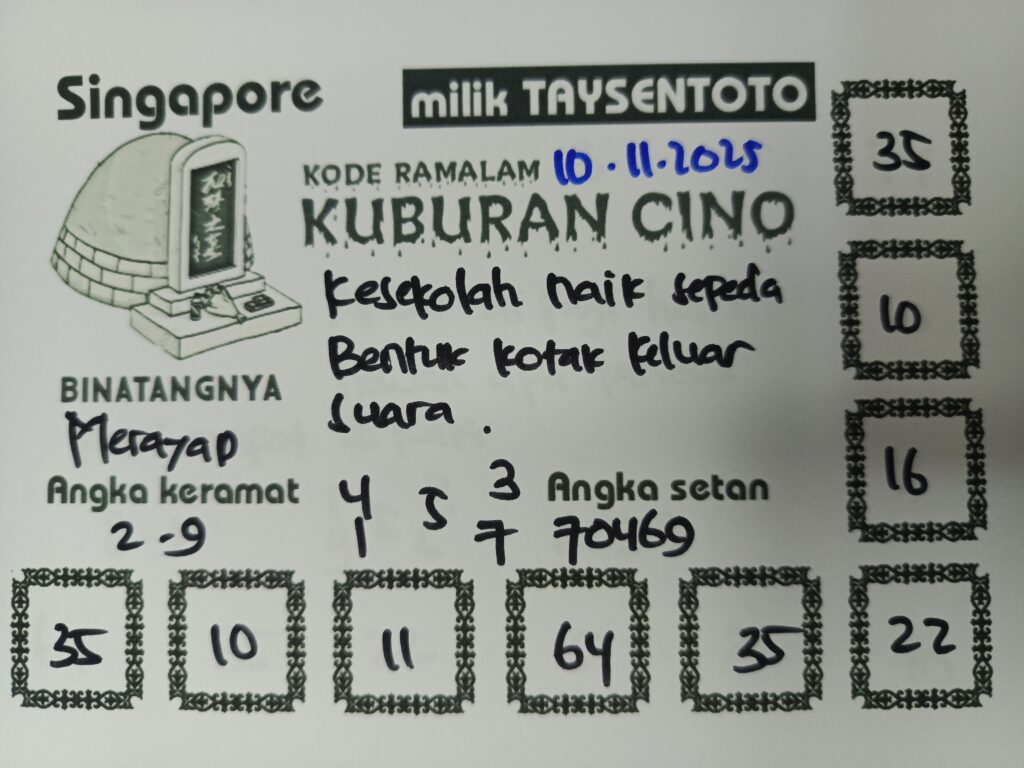 Singapore
milik TAYSENTOTO
KODE RAMALAM 10.11.2025
KUBURAN CINO
Kesekolah naik sepeda
Bentuk kotak keluar
suara.
BINATANGNYA
Merayap
Angka keramat
2-9
4 5 3
1 7
Angka setan
70469
35
10
16
35 10 11 64 35 22